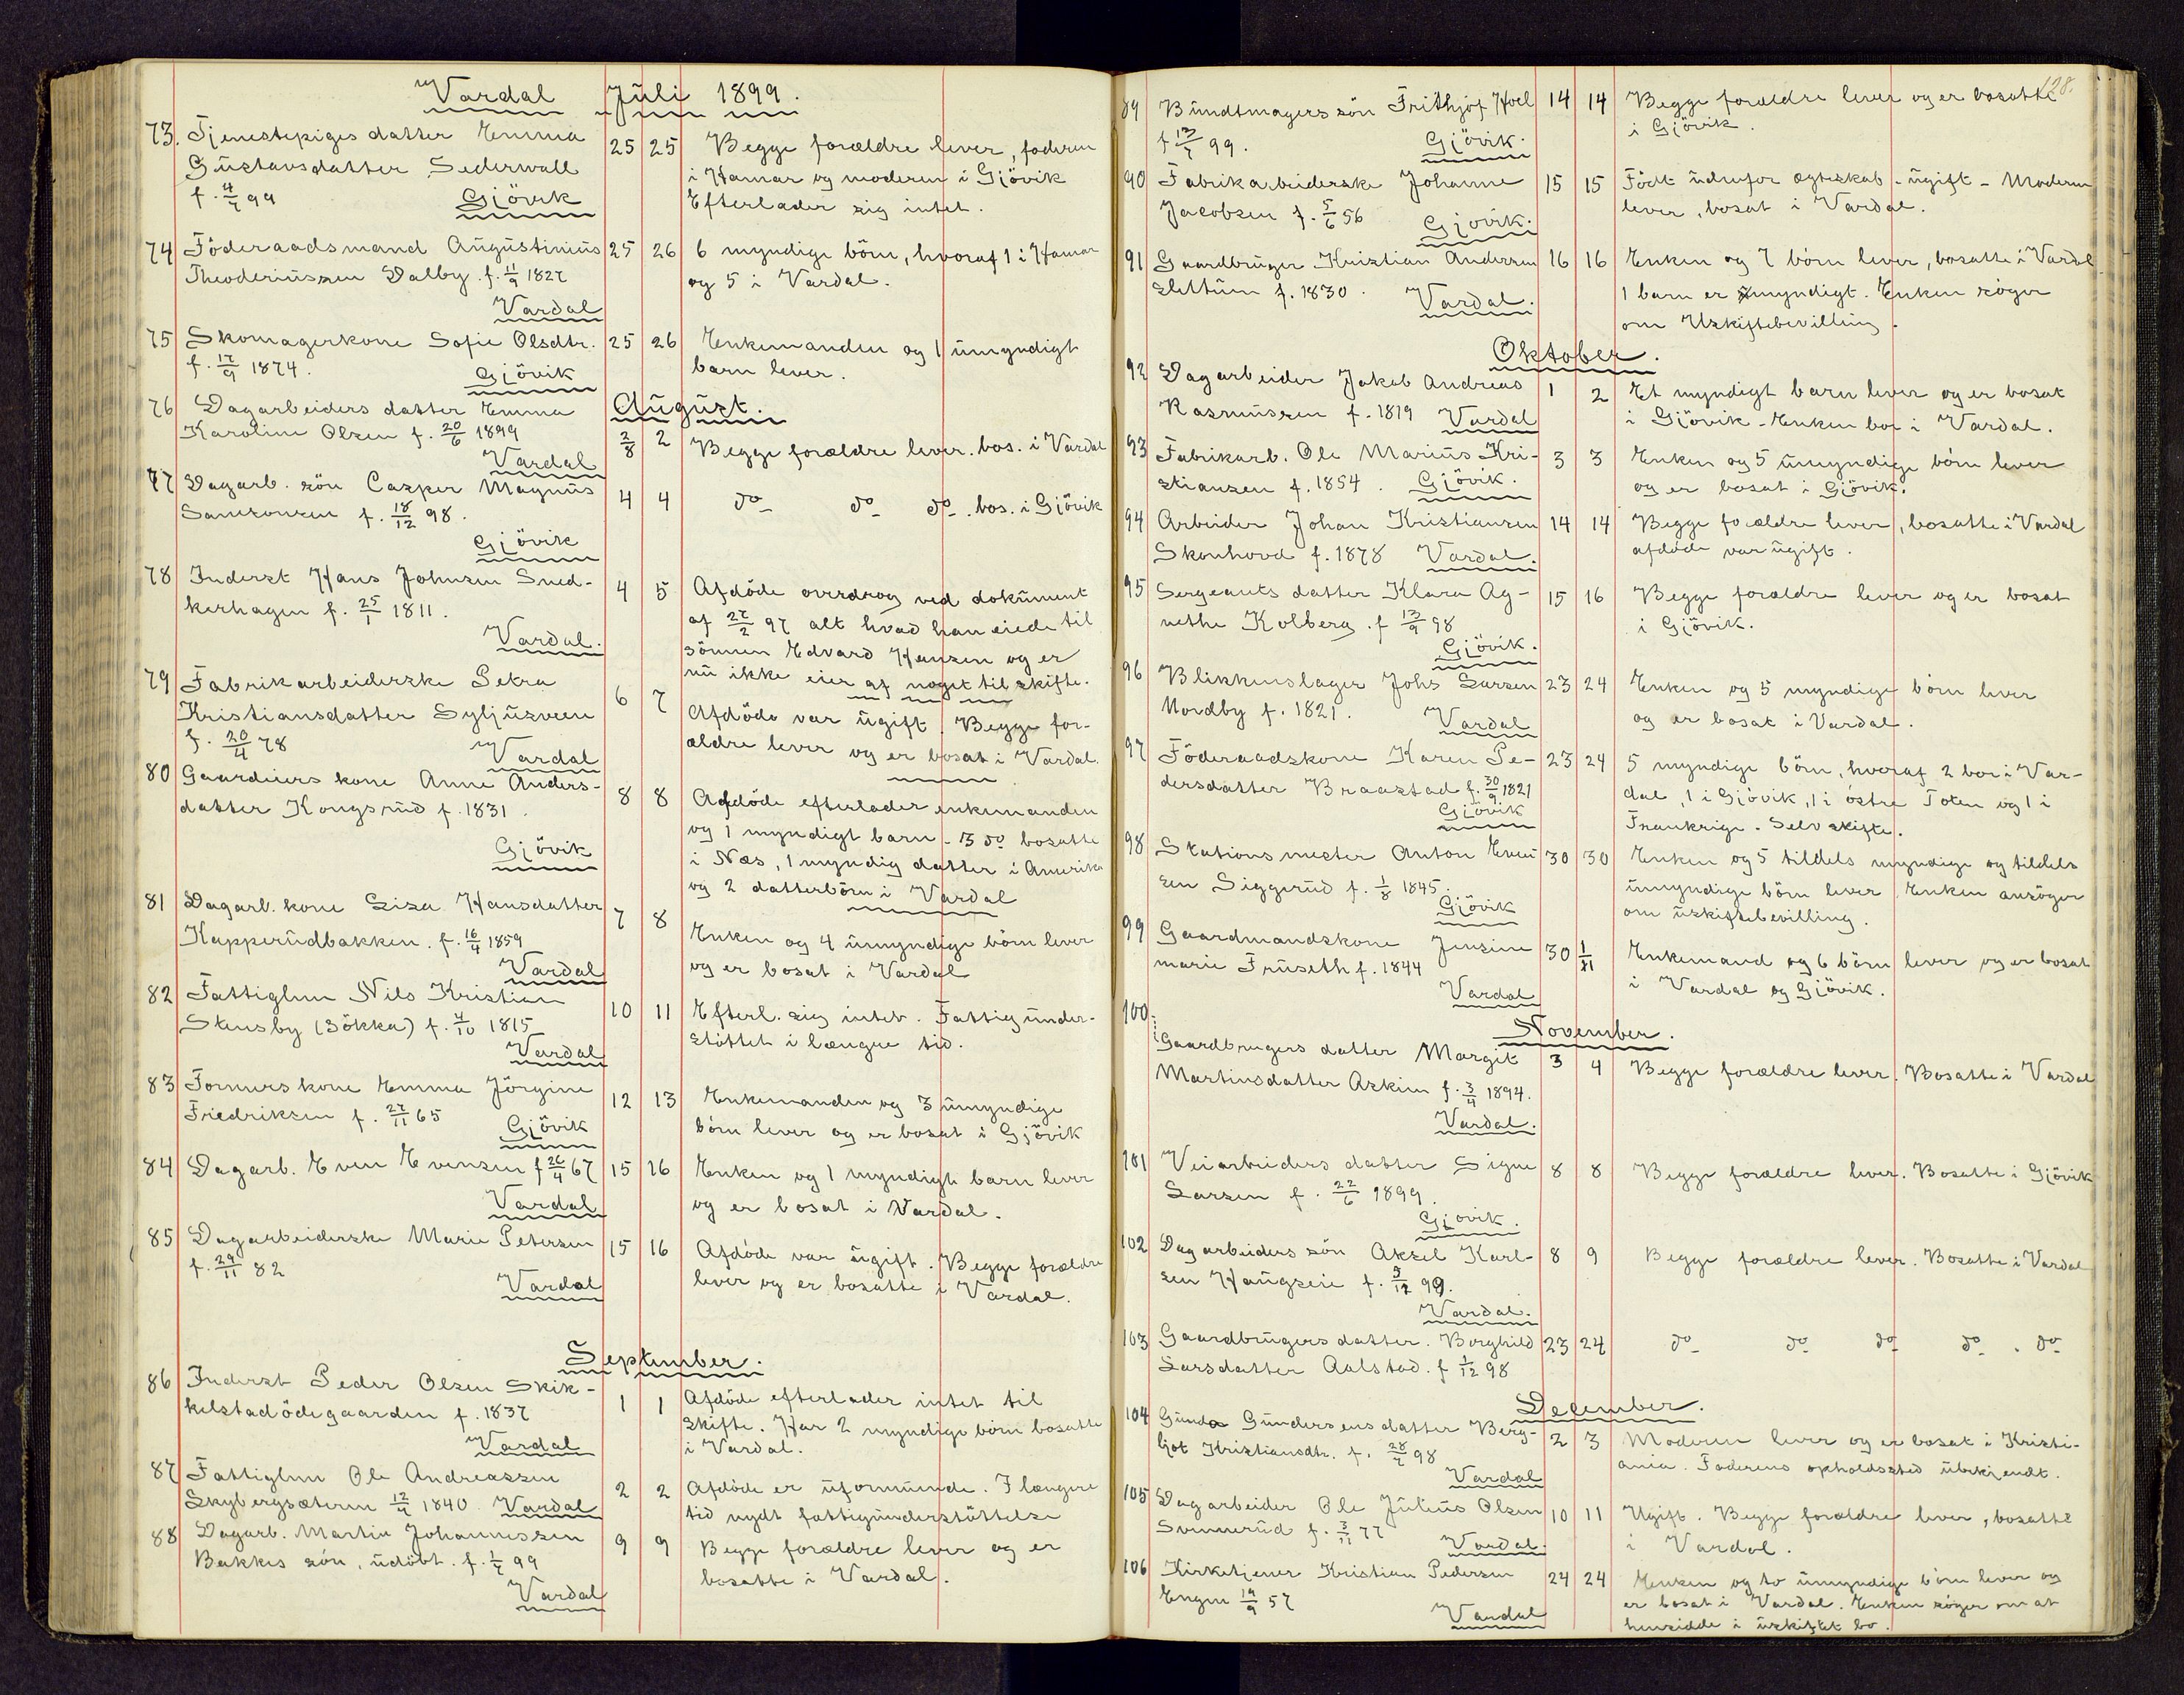 Vardal Juli 1899.
73. Tjenestepiges datter Emma
Gustavsdatter Sederwall
f. 4/7 99 Gjövik
25 25 Begge forældre lever, faderen
i Hamar og moderen i Gjövik
Efterlader sig intet.
74 Föderaadsmand Augustinius
Theoderiussen Dalby. f. 11/9 1827
Vardal
25 26 6 myndige börn, hvoraf 1 i Hamar
og 5 i Vardal.
75 Skomagerkone Sofie Olsdtr.
f. 17/9 1874.
Gjövik
25 26 Enkemanden og 1 umyndigt
barn lever.
August.
76 Dagarbeiders datter Emma
Karoline Olsen f. 20/6 1899
Vardal
2/8 2 Begge forældre lever. bos. i Vardal
77 Dagarb. sön Casper Magnus
Samsonsen f. 18/12 98.
Gjövik
4 4 do do do. bos. i Gjövik
78 Inderst Hans Johnsen Sned-
kerhagen f. 25/1 1811.
Vardal.
4 5 Afdöde overdrog ved dokument
af 27/2 97 alt hvad han eiede til
sönnen Edvard Hansen og er
nu ikke eier af noget til skifte.
79 Fabrikarbeiderske Petra
Kristiansdatter Syljusveen
f. 20/4 78
Vardal
6 7 Afdöde var ugift. Begge for-
ældre lever og er bosat i Vardal.
80 Gaardeiers kone Anne Anders-
datter Kongsrud f. 1831.
Gjövik
8 8 Afdöde efterlader enkemanden
og 1 myndigt barn - 3 do bosatte
i Næs, 1 myndig datter i Amerika
og 2 datterbörn i Vardal
81 Dagarb. kone Lisa Hansdatter
Kapperudbakken. f. 16/4 1859
Vardal
7 8 Enken og 4 umyndige börn lever
og er bosat i Vardal
82 Fattiglem Nils Kristian
Stensby (Sökka) f. 4/10 1815
Vardal
10 11 Efterl. sig intet. Fattigunder-
stöttet i længre tid.
83 Formers kone Emma Jörgine
Fredriksen f. 27/11 65
Gjövik
12 13 Enkemanden og 3 umyndige
börn lever og er bosat i Gjövik
84 Dagarb. Even Evensen f 26/4 67
Vardal
15 16 Enken og 1 myndigt barn lever
og er bosat i Vardal.
85 Dagarbeiderske Marie Petersen
f. 29/11 82
Vardal
15 16 Afdöde var ugift. Begge forældre
lever og er bosatte i Vardal.
September.
86 Inderst Peder Olsen Skik-
kelstadödegaarden f. 1837
Vardal
1 1 Afdöde efterlader intet til
skifte. Har 2 myndige börn bosatte
i Vardal.
87 Fattiglem Ole Andreassen
Skybergsæteren 12/4 1840. Vardal
2 2 Afdöde er uformuende. I længere
tid nydt fattigunderstöttelse
88 Dagarb. Martin Johannessen
Bakkes sön, udöbt. f. 1/7 99
Vardal
9 9 Begge forældre lever og er
bosatte i Vardal.
128.
89 Bundtmagers sön Frithjof Hoel
f 13/7 99. Gjövik.
14 14 Begge forældre lever og er bosatte
i Gjövik.
90 Fabrikarbeiderske Johanne
Jacobsen f. 5/6 56 Gjovik.
15 15 Födt udenfor ægteskab - ugift - Moderen
lever, bosat i Vardal.
91 Gaardbruger Kristian Andersen
Slettum f. 1830. Vardal.
16 16 Enken og 7 börn lever, bosatte i Vardal
1 barn er umyndigt. Enken söger
om Uskiftebevilling.
Oktober.
92 Dagarbeider Jakob Andreas
Rasmussen f. 1819 Vardal
1 2 Et myndigt barn lever og er bosat
i Gjövik - Enken bor i Vardal.
93 Fabrikarb. Ole Marius Kri-
stiansen f. 1854. Gjövik.
3 3 Enken og 5 umyndige börn lever
og er bosat i Gjövik.
94 Arbeider Johan Kristiansen
Skonhovd f. 1878 Vardal.
14 14 Begge forældre lever, bosatte i Vardal
afdöde var ugift.
95 Sergeants datter Klara Ag-
nethe Kolberg. f 13/9 98
Gjövik.
15 16 Begge forældre lever og er bosat
i Gjövik.
96 Blikkenslager Johs Larsen
Nordby f. 1821. Vardal
23 24 Enken og 5 myndige börn lever
og er bosat i Vardal.
97 Föderaadskone Karen Pe-
dersdatter Braastad f. 30/9 1821
Gjövik
23 24 5 myndige börn, hvoraf 2 bor i Var-
dal, 1 i Gjövik, 1 i östre Toten og 1 i
Frankrige. Selvskifte.
98 Stationsmester Anton Even-
sen Siggerud f. 1/8 1845.
Gjövik
30 30 Enken og 5 tildels myndige og tildels
umyndige börn lever. Enken ansöger
om uskiftebevilling.
99 Gaardmandskone Jensine
marie Fruseth f. 1844
Vardal
30 1/11 Enkemand og 6 börn lever og er bosat
i Vardal og Gjövik.
November.
100. Gaardbrugers datter Margit
Martinsdatter Askim f. 3/4 1894.
Vardal.
3 4 Begge forældre lever. Bosatte i Vardal
101 Veiarbeiders datter Signe
Larsen f. 22/6 1899.
Gjovik.
8 8 Begge forældre lever. Bosatte i Gjövik
102 Dagarbeiders sön Aksel Karl-
sen Haugseie f. 3/12 99.
Vardal.
8 9 Begge forældre lever. Bosatte i Vardal
103 Gaardbrugers datter. Borghild
Larsdatter Aalstad. f 1/12 98
23 24 do do do do. do
December.
104 Gunda Gundersens datter Berg-
ljot Kristiansdtr. f. 28/7 98
Vardal
2 3 Moderen lever og er bosat i Kristi-
ania. Faderens opholdssted ubekjendt.
105 Dagarbeider Ole Julius Olsen
Svennerud f. 3/11 77
Vardal.
10 11 Ugift. Begge forældre lever, bosatte
i Vardal.
106 Kirketjener Kristian Pedersen
Engen 14/9 57
Vardal
24 24 Enken og to umyndige börn lever og
er bosat i Vardal. Enken söger om at
hensidde i uskiftet bo.